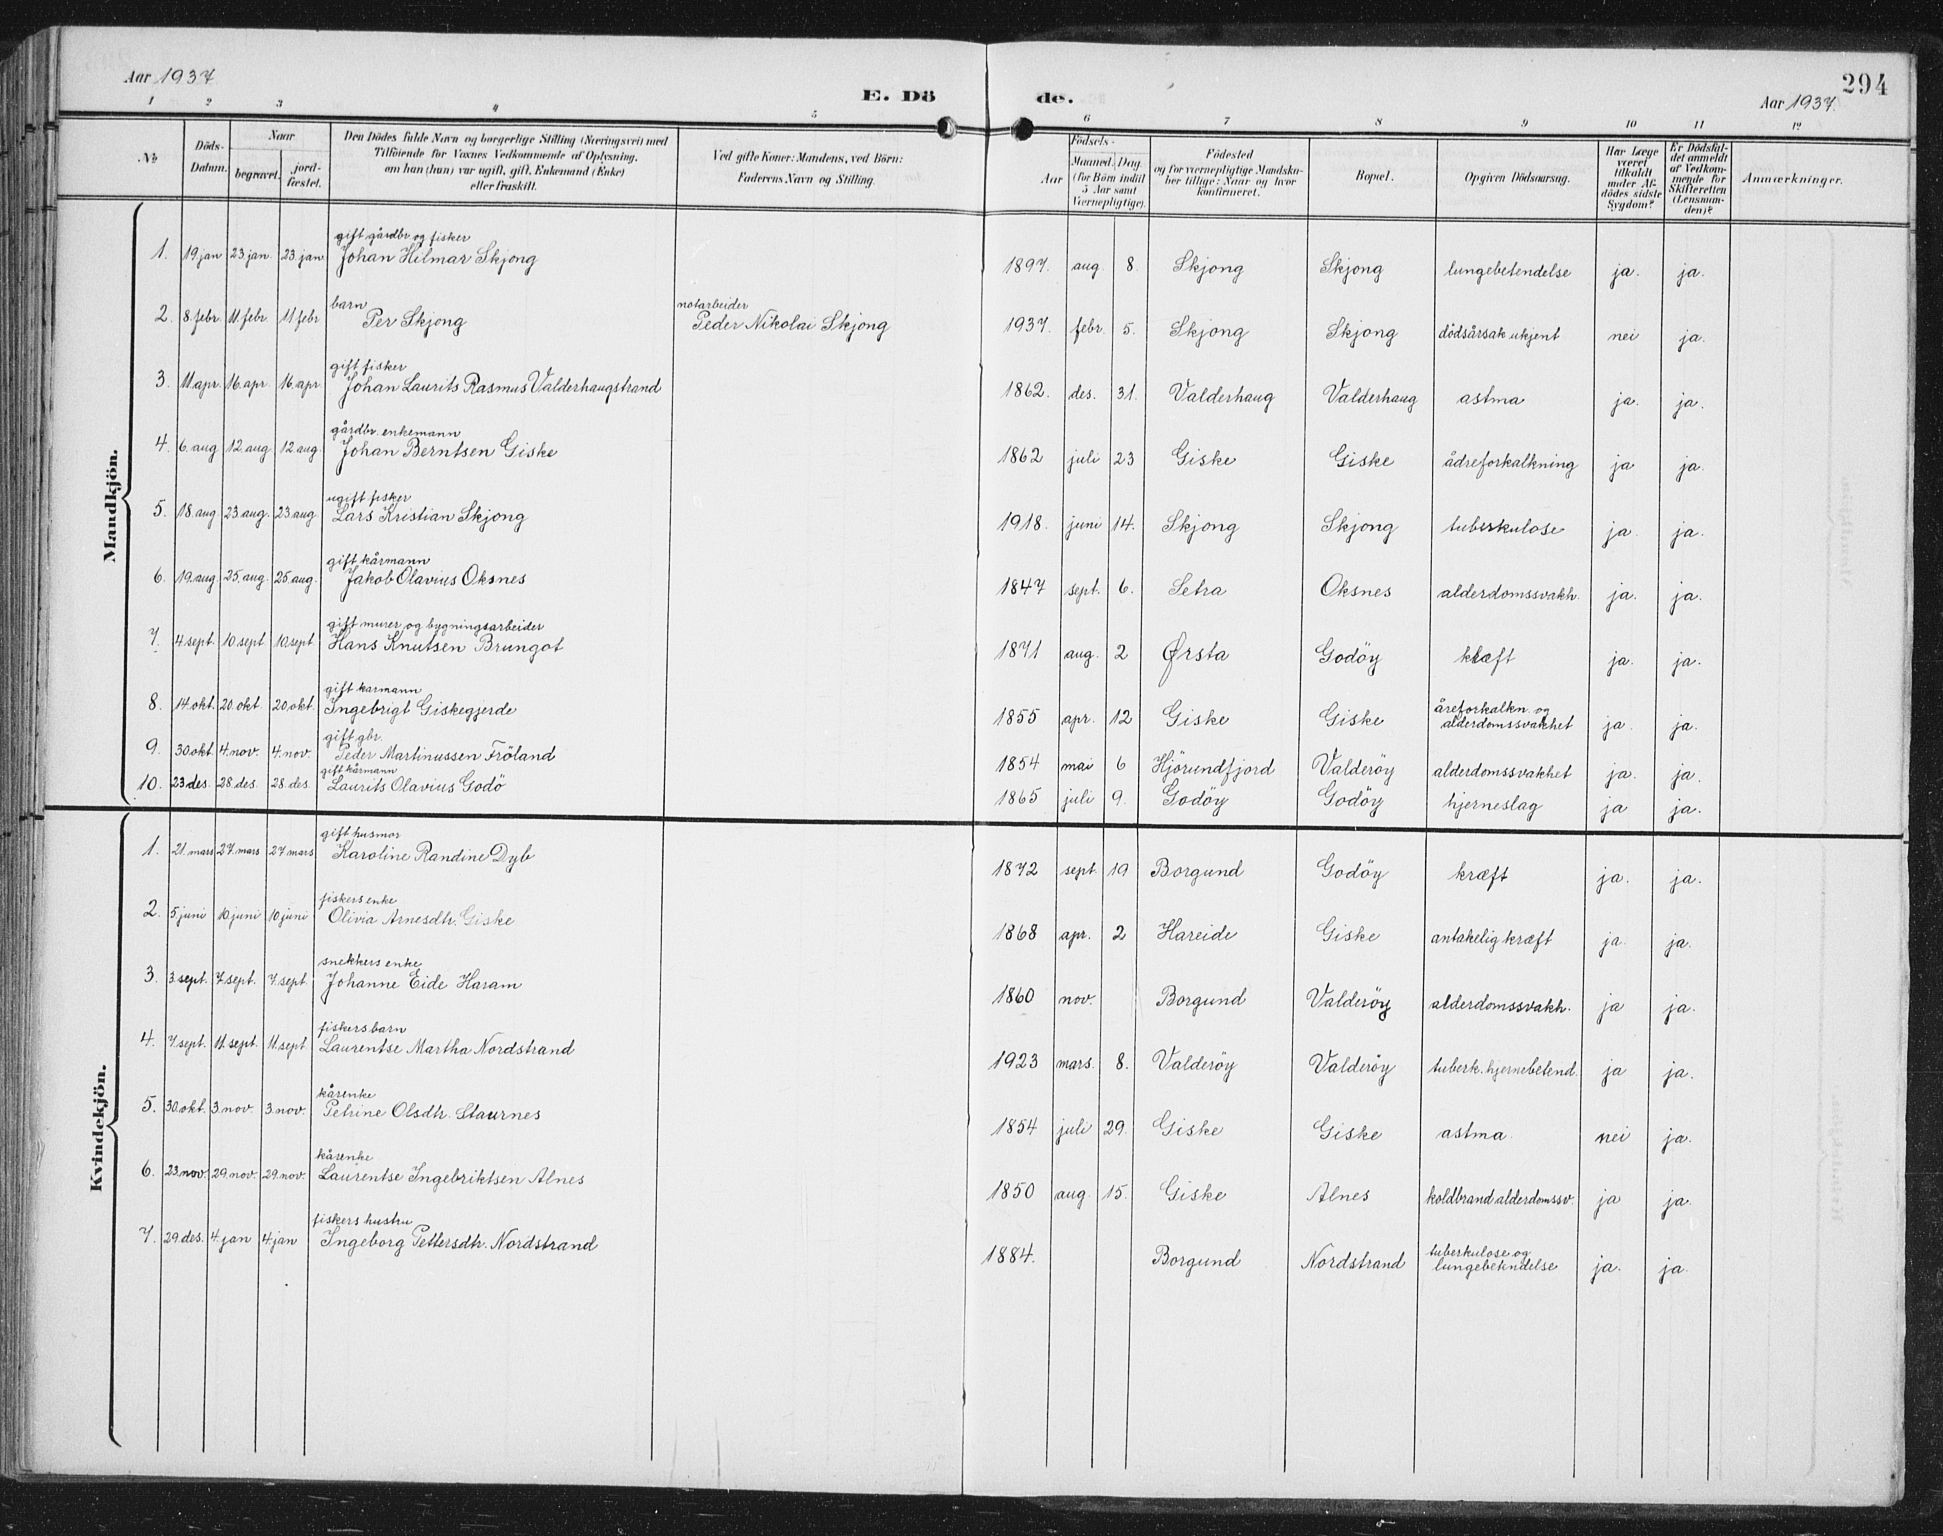 Aar 1937
E. Dö de.
294
Aar 1937.
1 2 3 4 5 6 7 8 9 10 11 12
№
Döds-Datum.
Naar
begravet.
jord-fæstet.
Den Dödes fulde Navn og borgerlige Stilling (Næringsvei) med
Tilföiende for Voxnes Vedkommende af Oplysning,
om han (hun) var ugift, gift, Enkemand (Enke)
eller fraskilt.
Ved gifte Koner: Mandens, ved Börn:
Faderens Navn og Stilling.
Födsels-
Aar
Maaned. Dag.
(for Börn indtil
5 Aar samt
Værnepligtige).
Födested
og for værnepligtige Mandska-
ber tillige: Naar og hvor
konfirmeret.
Bopæl.
Opgiven Dödsaarsag.
Har Læge
været
tilkaldt
under Af-
dödes sidste
Sygdom?
Er Dödsfal-
det anmeldt
af Vedkom-
mende for
Skifteretten
(Lensman-
den)?
Anmærkninger.
Mandkjön.
gift gårdbr. og fisker
1. 19. jan 23. jan. 23. jan Johan Hilmar Skjong 1897. aug. 8. Skjong Skjong lungebetendelse ja. ja.
barn notarbeider
2. 8. febr. 11. febr. 11 febr Per Skjong Peder Nikolai Skjong 1937. febr. 5. Skjong Skjong dödsårsak ukjent nei ja.
gift fisker
3. 11. apr. 16. apr 16. apr Johan Laurits Rasmus Valderhaugstrand 1862. des. 31. Valderhaug Valderhaug astma ja. ja.
gårdbr. enkemann
4. 6. aug 12. aug 12 aug. Johan Berntsen Giske 1862 juli 23 Giske Giske ådreforkalkning ja ja.
ugift fisker
5. 18. aug 23. aug. 23. aug Lars Kristian Skjong 1918. juni 14. Skjong Skjong tuberkulose ja. ja.
gift kårmann
6. 19. aug. 25. aug. 25. aug. Jakob Olavius Oksnes 1847 sept. 6. Setra Oksnes alderdomssvakh. ja. ja.
gift murer og bygningsarbeider
7. 4 sept. 10 sept 10. sept Hans Knutsen Brungot 1871 aug. 2 Ørsta Godöy kræft ja. ja.
gift karmann
8. 14. okt. 20. okt 20. okt. Ingebrigt Giskegjerde 1855 apr. 12 Giske Giske åreforkalkn. og
alderdomssvakhet ja. ja.
gift gbr.
9. 30. okt. 4. nov. 4. nov. Peder Martinussen Fröland 1854 mai 6 Hjörundfjord Valderöy alderdomssvakhet ja. ja.
gift kårmann
10. 23 des. 28. des. 28. des. Laurits Olavius Godö 1865 juli 9. Godöy Godöy hjerneslag ja ja.
Kvindekjön.
gift husmor
1. 21. mars 27. mars 27 mars Karoline Randine Dyb 1872 sept 19 Borgund Godöy kræft ja. ja.
fiskers enke
2. 5 juni 10. juni 10 juni Olivia Arnesdtr. Giske 1868 apr. 2 Hareide Giske antakelig kræft ja. ja.
snekkers enke
3. 3. sept. 7. sept. 7. sept. Johanne Eide Haram 1860 nov. Borgund Valderöy alderdomssvakh. ja ja.
fiskers barn
4. 7. sept. 11. sept. 11. sept Laurentse Martha Nordstrand 1923 mars. 8. Valderöy Valderöy tuberk. hjernebetend. ja ja.
kårenke
5. 30. okt. 3. nov. 3. nov. Petrine Olsdtr. Staurnes 1854 juli 29. Giske Giske astma. nei ja.
kårenke
6. 23. nov. 29. nov. 29. nov. Laurentse Ingebriktsen Alnes 1850 aug. 15. Giske Alnes koldbrand alderdomssv. ja ja.
fiskers hustru
7. 29. des. 4. jan 4. jan Ingeborg Pettersdtr. Nordstrand 1884. Borgund Nordstrand tuberkulose og
lungebetendelse ja. ja.